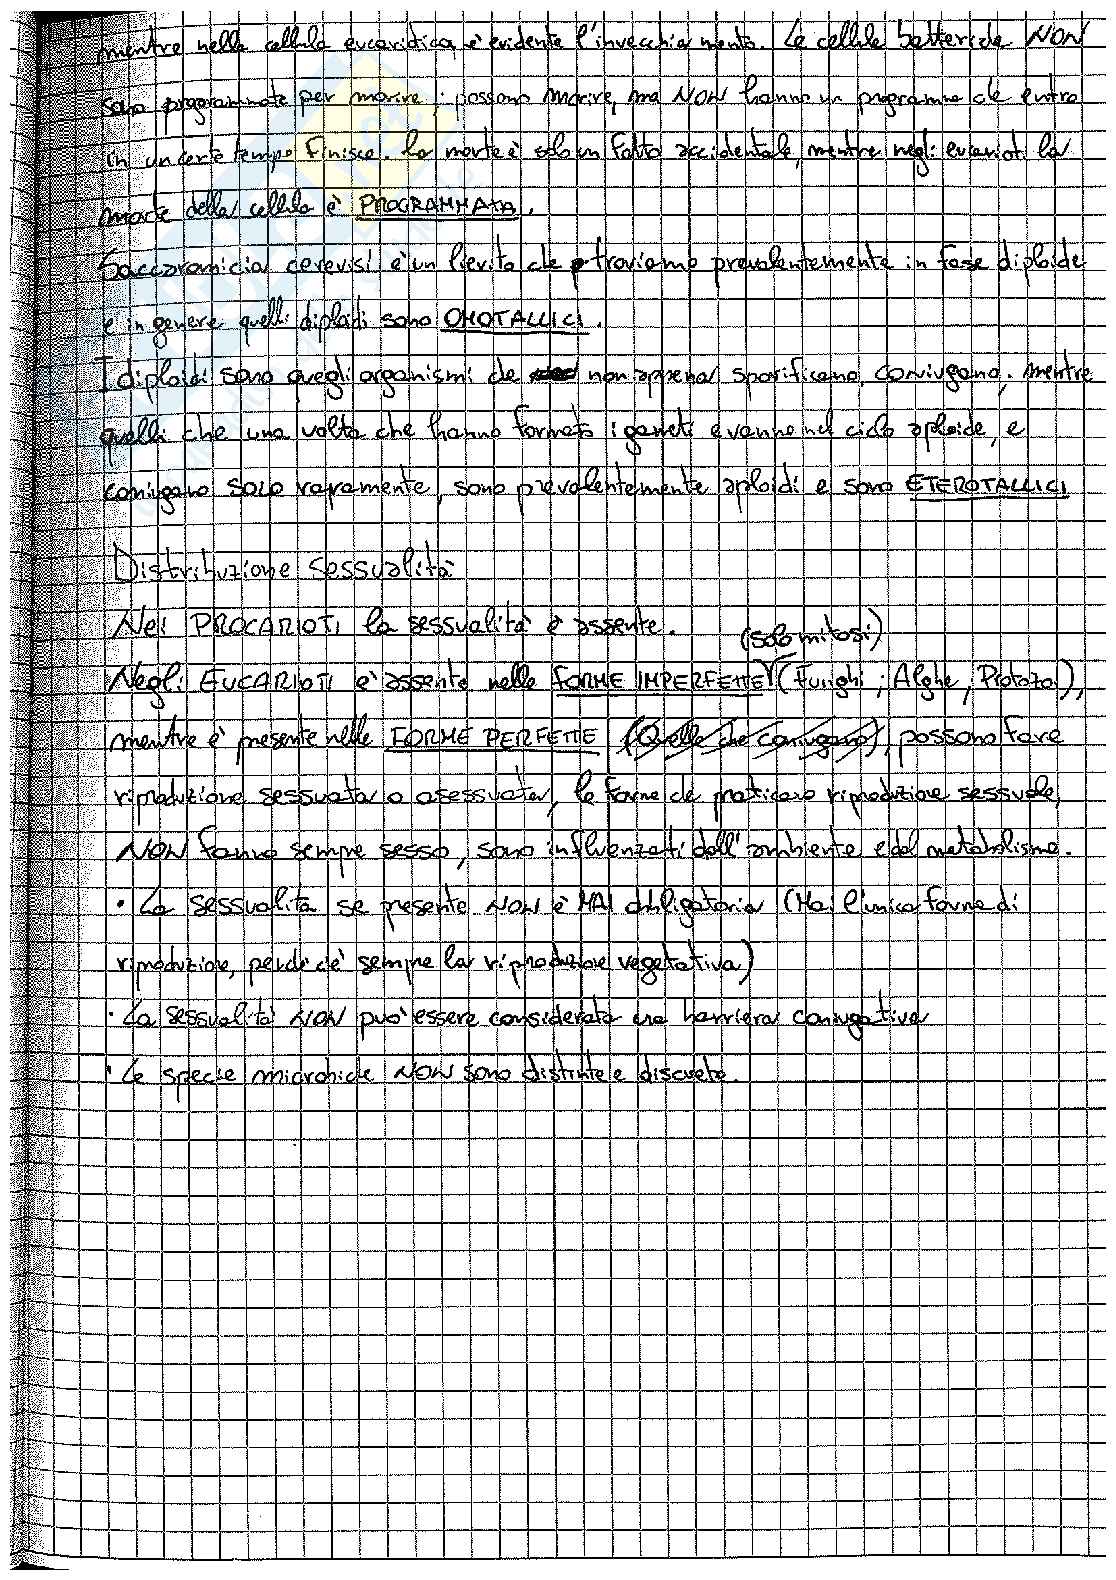 mentre nella cellula eucariotica, è evidente l'invecchiamento. Le cellule batteriche NON
sono programmate per morire; possono morire, ma NON hanno un programma che entro
in un certo tempo finisce. La morte è solo un fatto accidentale, mentre negli eucarioti la
morte della cellula è PROGRAMMATA.
Saccaromicia cerevisi è un lievito che troviamo prevalentemente in fase diploide
e in genere quelli diploidi sono OMOTALLICI.
I diploidi sono quegli organismi che non appena sporificano, coniugano; mentre
quelli che una volta che hanno formato i gameti e vanno nel ciclo aploide, e
coniugano solo raramente, sono prevalentemente aploidi e sono ETEROTALLICI
Distribuzione sessualità
Nei PROCARIOTI la sessualità è assente.
(solo mitosi)
Negli EUCARIOTI è assente nelle FORME IMPERFETTE (Funghi, Alghe, Protozoi),
mentre è presente nelle FORME PERFETTE (Quelle che coniugano), possono fare
riproduzione sessuata o asessuata, le forme che praticano riproduzione sessuale,
NON fanno sempre sesso, sono influenzati dall'ambiente e dal metabolismo.
• La sessualità se presente NON è MAI obbligatoria (Mai l'unica forma di
riproduzione, perché c'è sempre la riproduzione vegetativa)
• La sessualità NON può essere considerata una barriera coniugativa
• Le specie microbiche NON sono distinte e discrete.